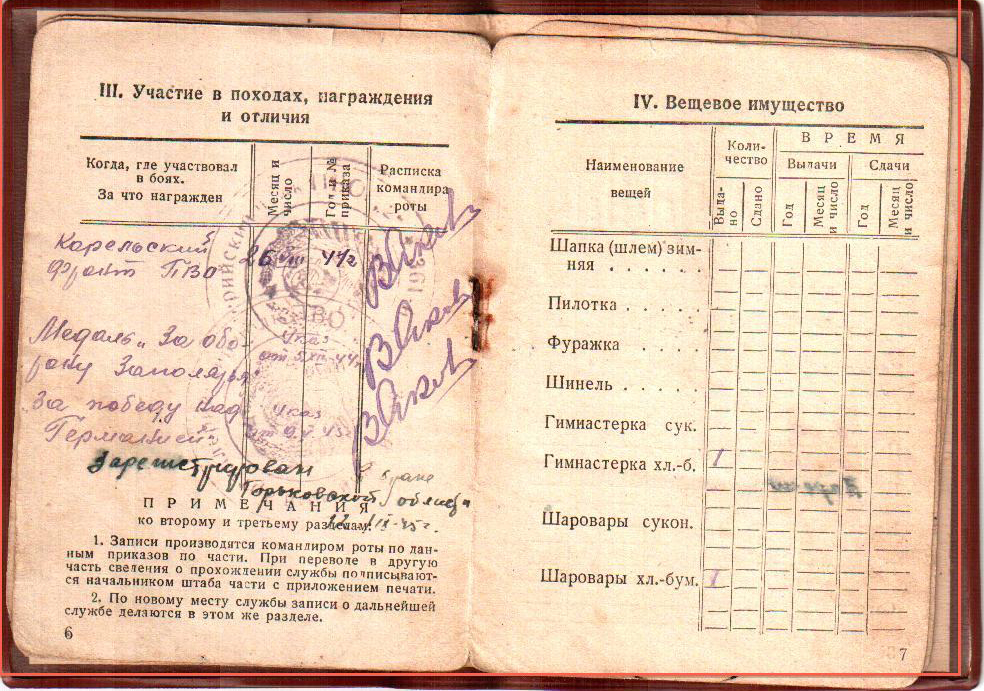 III. Участие в походах, награждения
и отличия
Когда, где участвовал
в боях.
За что награжден
Месяц и
число
Год и №
приказа
Расписка
командира
роты
Карельский
фронт ПВО
26 VIII 42г
Медаль „За обо-
рону Заполярья"
Указ
от 5.XII.44г.
За победу над
Германией"
Указ
от 9.V.45
Зарегистрирован в
Горьковской
П Р И М Е Ч А Н И Я
ко второму и третьему разделам.
1. Записи производятся командиром роты по дан-
ным приказов по части. При переводе в другую
часть сведения о прохождении службы подписывают-
ся начальником штаба части с приложением печати.
2. По новому месту службы записи о дальнейшей
службе делаются в этом же разделе.
6
IV. Вещевое имущество
Наименование
вещей
Коли-
чество
В Р Е М Я
Выдачи
Сдачи
Выда-
но
Сдано
Год
Месяц
и число
Год
Месяц
и число
Шапка (шлем) зим-
няя . . . . . .
Пилотка . . . .
Фуражка . . . .
Шинель . . . . .
Гимнастерка сук.
Гимнастерка хл.-б. 1
Шаровары сукон.
Шаровары хл.-бум. 1
7